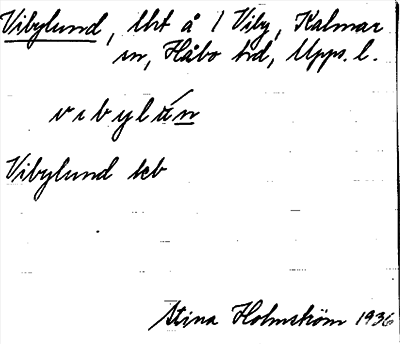 Vibylund, lht å 1 Viby, Kalmar
sn, Håbo hd, Upps. l.
vibylún
Vibylund kb
Stina Holmström 1936